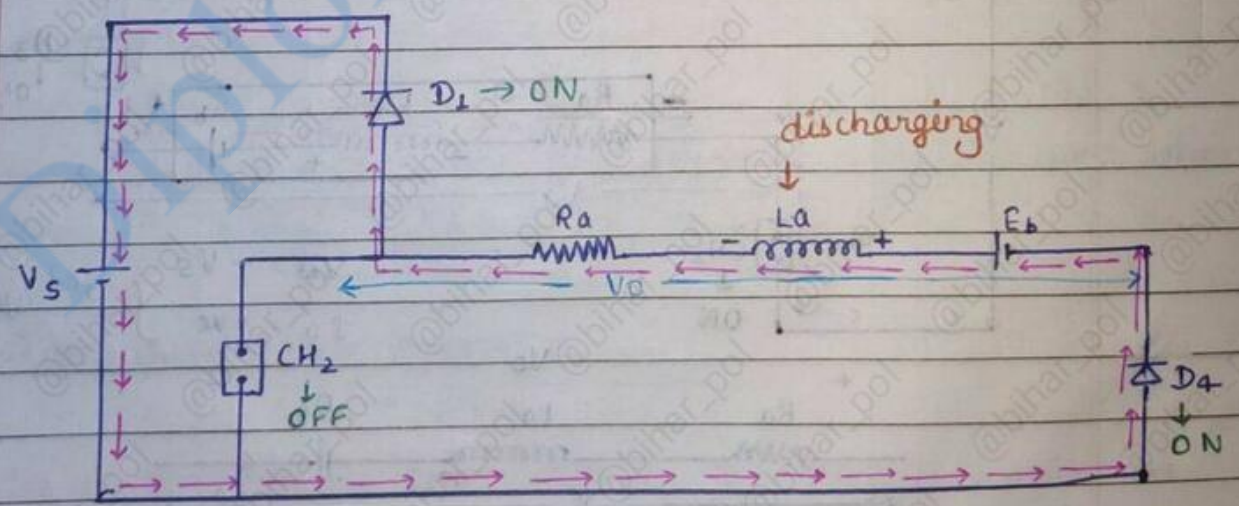 D1 → ON
discharging
↓
Ra
La
Eb
- +
Vs
Vo
CH2
↓
OFF
D4
↓
ON
Diplo
@bihar_pol